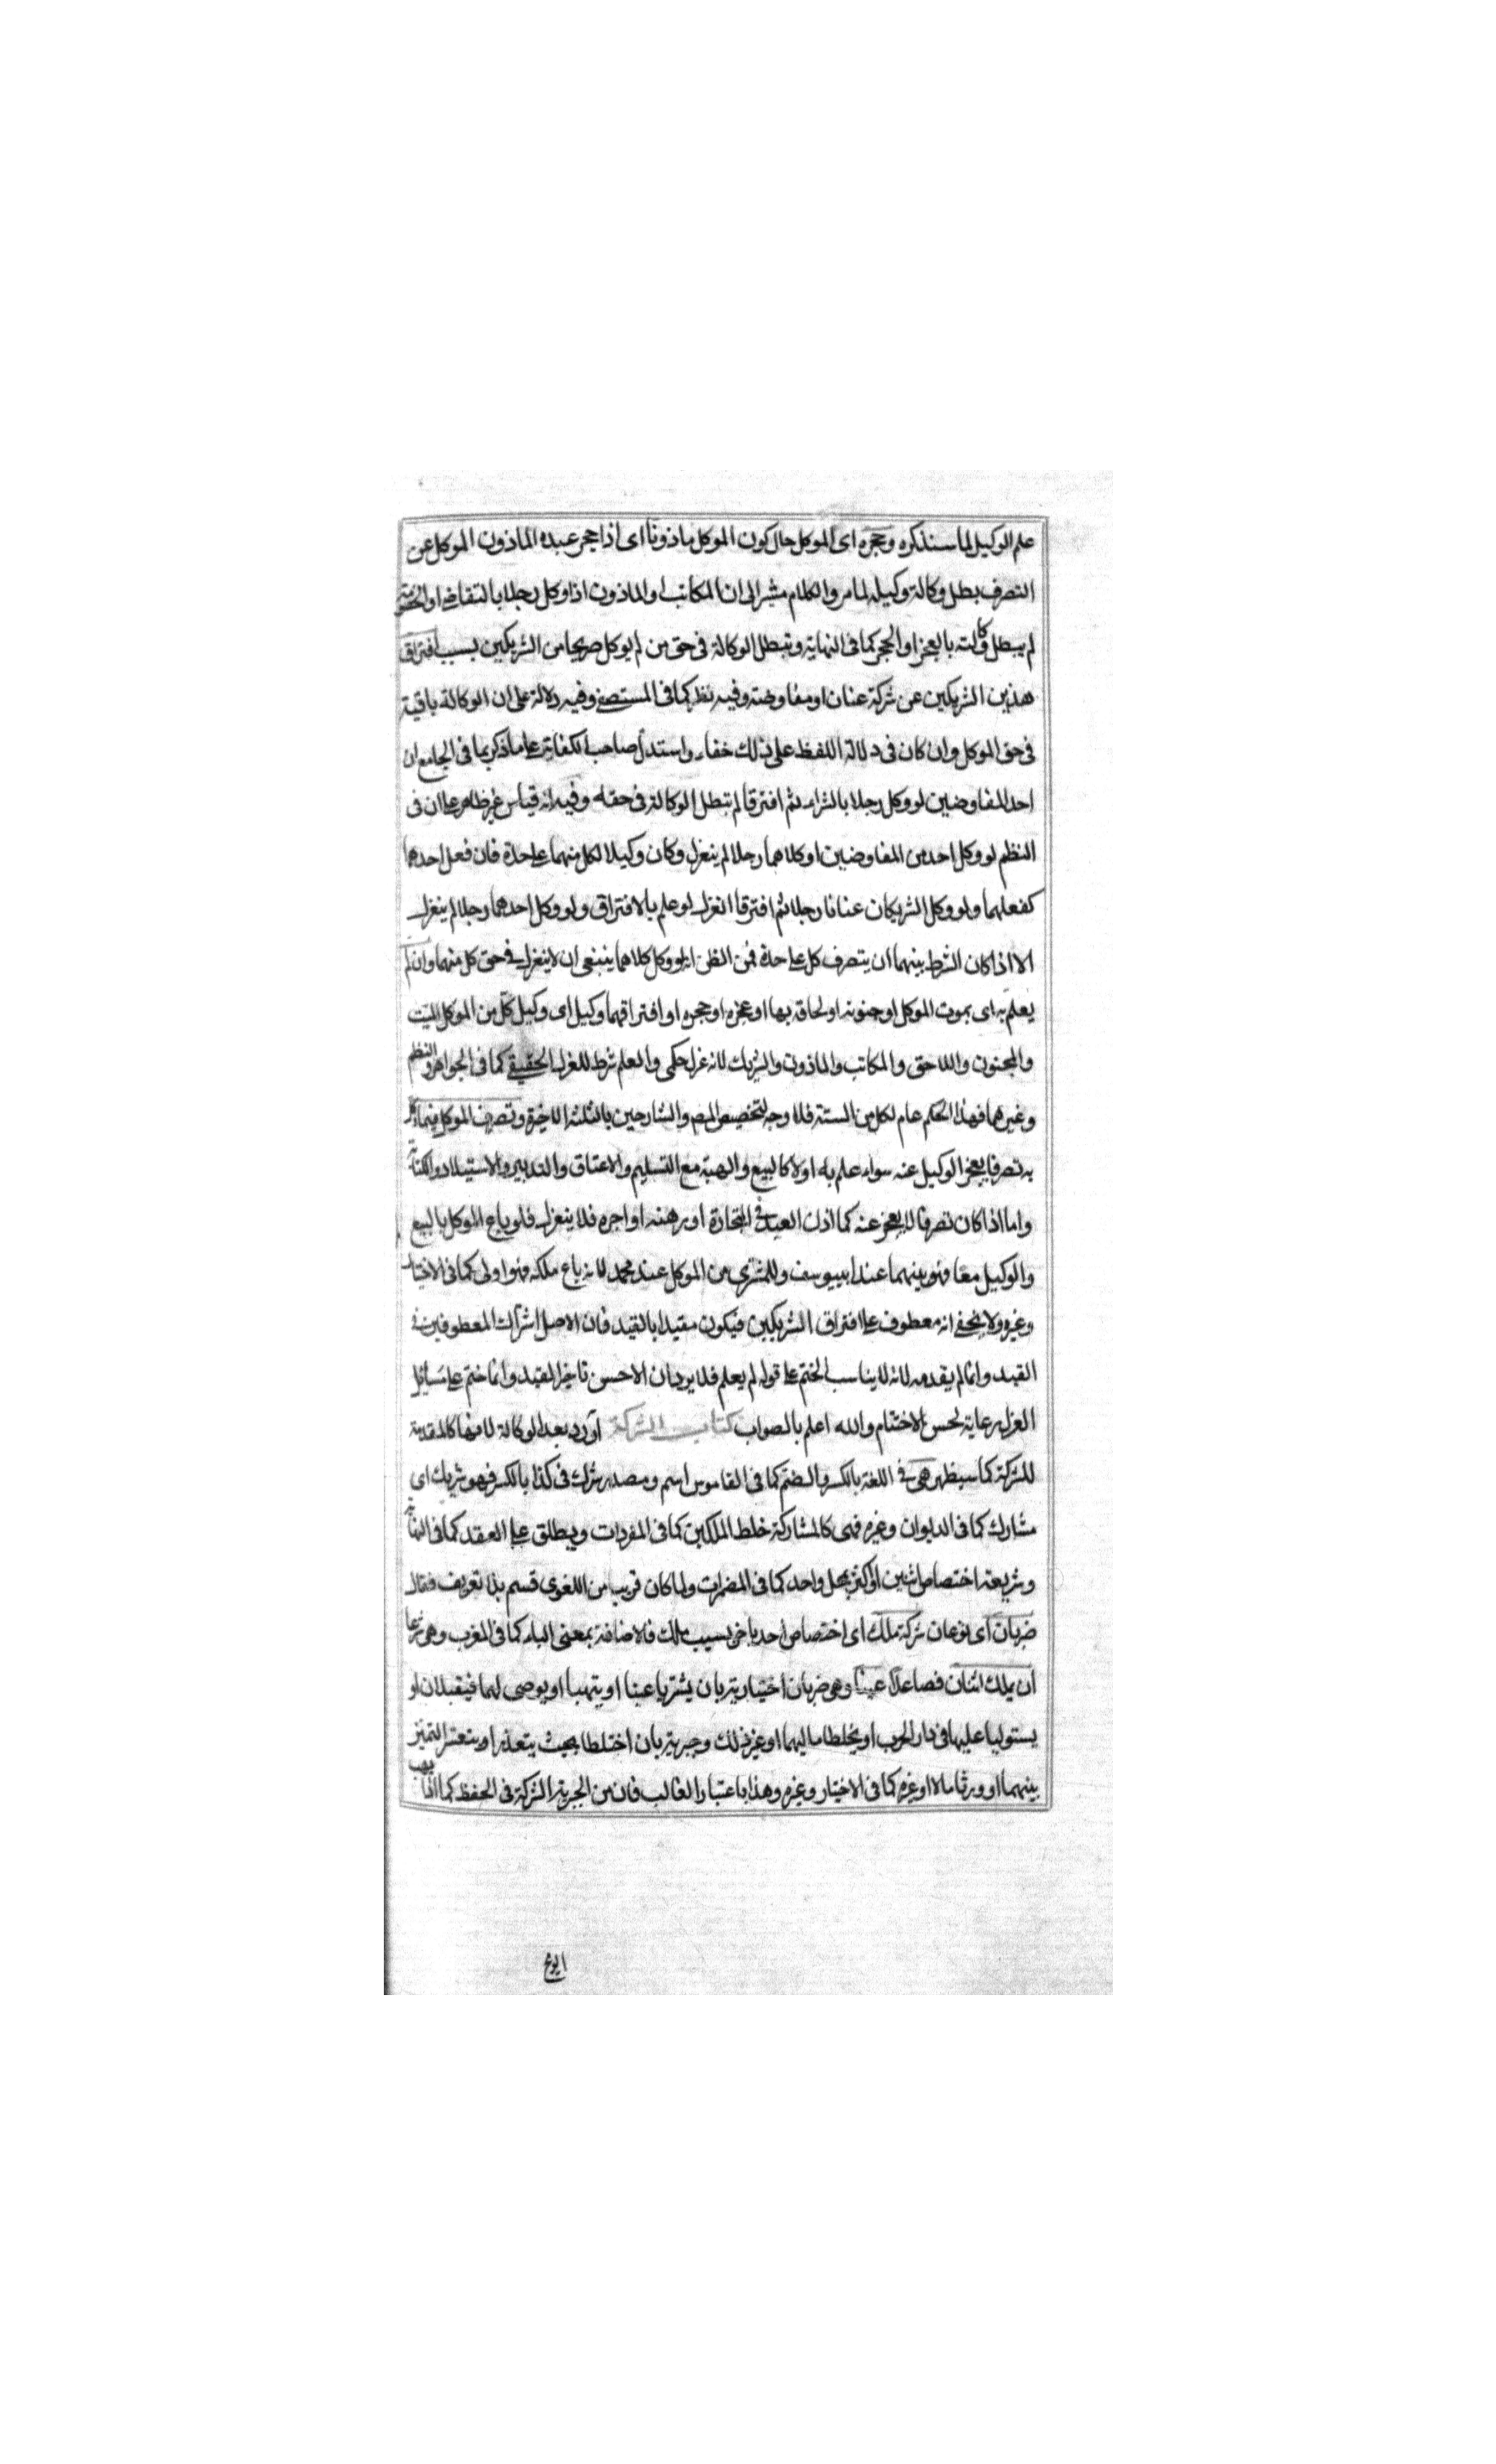 علم الوكيل لما سنذكره وحجره اى الموكل حال كون الموكل ماذونا اى اذا حجر عبده الماذون الموكل عن
التصرف بطل وكالة وكيله لما مر والكلام مشير الى ان المكاتب او الماذون اذا وكل رجلا بالتقاضى او الخصومة
لم يبطل وكالته بالعجز او الحجر كما فى النهاية وتبطل الوكالة فى حق من لم يوكل صريحا من الشريكين بسبب افتراق
هذين الشريكين عن شركة عنان او مفاوضة وفيه نظر كما فى المستصفى وفيه دلالة على ان الوكالة باقية
فى حق الموكل وان كان فى دلالة اللفظ على ذلك خفاء واستدل صاحب الكفاية على ما ذكر بما فى الجامع ان
احد المفاوضين لو وكل رجلا بالشراء ثم افترقا لم تبطل الوكالة فى حقه وفيه انه قياس غير ظاهر على ان فى
النظم لو وكل احد من المفاوضين او كلاهما رجلا لم ينعزل وكان وكيلا لكل منهما على حدة فان فعل احدهما
كفعلهما ولو وكل الشريكان عنانا رجلا ثم افترقا انعزل لو علم بالافتراق ولو وكل احدهما رجلا لم ينعزل
الا اذا كان الشرط بينهما ان يتصرف كل على حدة فمن الظن انه لو وكل كلاهما ينبغى ان لا ينعزل فى حق كل منهما وان لم
يعلم به اى بموت الموكل او جنونه او لحاقه بها او عجزه او حجره او افتراقهما وكيل اى وكيل كل من الموكل الميت
والمجنون واللاحق والمكاتب والماذون والشريك لانه عزل حكمى والعلم شرط للعزل الحقيقى كما فى الجواهر والنظم
وغيرهما فهذا الحكم عام لكل من الستة فلا وجه لتخصيص المص والشارحين بالثلثة الاخيرة وتصرف الموكل فيما وكل
به تصرفا يعجز الوكيل عنه سواء علم به اولا كالبيع والهبة مع التسليم والاعتاق والتدبير والاستيلاد والكتابة
واما اذا كان تصرفا لا يعجز عنه كما اذن العبد فى التجارة او رهنه او اجره فلا ينعزل فلو باع الموكل بالبيع
والوكيل معا فهو بينهما عند ابييوسف وللمشترى من الموكل عند محمد لانه باع ملكه فهو اولى كما فى الاختيار
وغيره ولا يخفى انه معطوف على افتراق الشريكين فيكون مقيدا بالقيد فان الاصل اشتراك المعطوفين فى
القيد وانما لم يقدمه لانه لا يناسب الختم على قوله لم يعلم فلا يرد ان الاحسن تاخير القيد وانما ختم على مسائل
العزل رعاية لحسن الاختتام والله اعلم بالصواب كتاب الشركة اورد بعد الوكالة لانها كالمقدمة
للشركة كما سيظهر هى فى اللغة بالكسر والضم كما فى القاموس اسم ومصدر شرك فى كذا بالكسر فهو شريك اى
مشارك كما فى الديوان وغيره فهى كالمشاركة خلط الملكين كما فى المفردات ويطلق على العقد كما فى النهاية
وشريعة اختصاص اثنين او اكثر بمحل واحد كما فى المضمرات ولما كان قريب من اللغوى قسم بلا تعريف فقال
ضربان اى نوعان شركة ملك اى اختصاص احد باخر بسبب ملك فالاضافة بمعنى الباء كما فى المغرب وهى شرعا
ان يملك اثنان فصاعدا عينا وهى ضربان اختيارية بان يشتريا عينا او يتهبا او يوصى لهما فيقبلان او
يستوليا عليها فى دار الحرب او يخلطا ماليهما او غير ذلك وجبرية بان اختلطا بحيث يتعذر او يتعسر التميز
بينهما او ورثا مالا او غيره كما فى الاختيار وغيره وهذا باعتبار الغالب فان من الجبرية الشركة فى الحفظ كما اذا هب